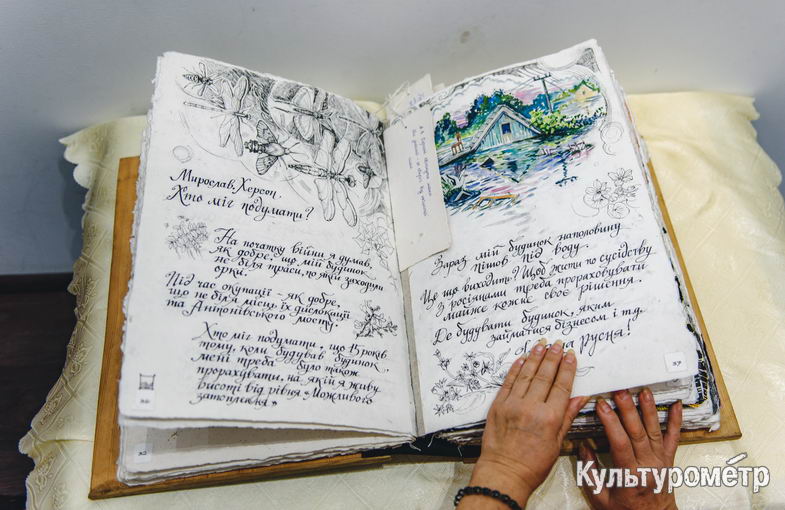 Мирослав, Херсон.
Хто міг подумати?
На початку війни я думав,
як добре, що мій будинок
не біля траси, по якій заходили
орки.
Під час окупації – як добре,
що не біля місць їх дислокації
та Антонівського мосту.
Хто міг подумати, що 15 років
тому, коли будував будинок,
мені треба було також
прорахувати, на якій я живу
висоті від рівня «Можливого
затоплення»
26
Зараз мій будинок наполовину
пішов під воду.
Це що виходить? Щоб жити по сусідству
з росіянами треба прораховувати
майже кожне своє рішення.
Де будувати будинок, яким
займатися бізнесом і т.д.
русня!
27
Культурометр